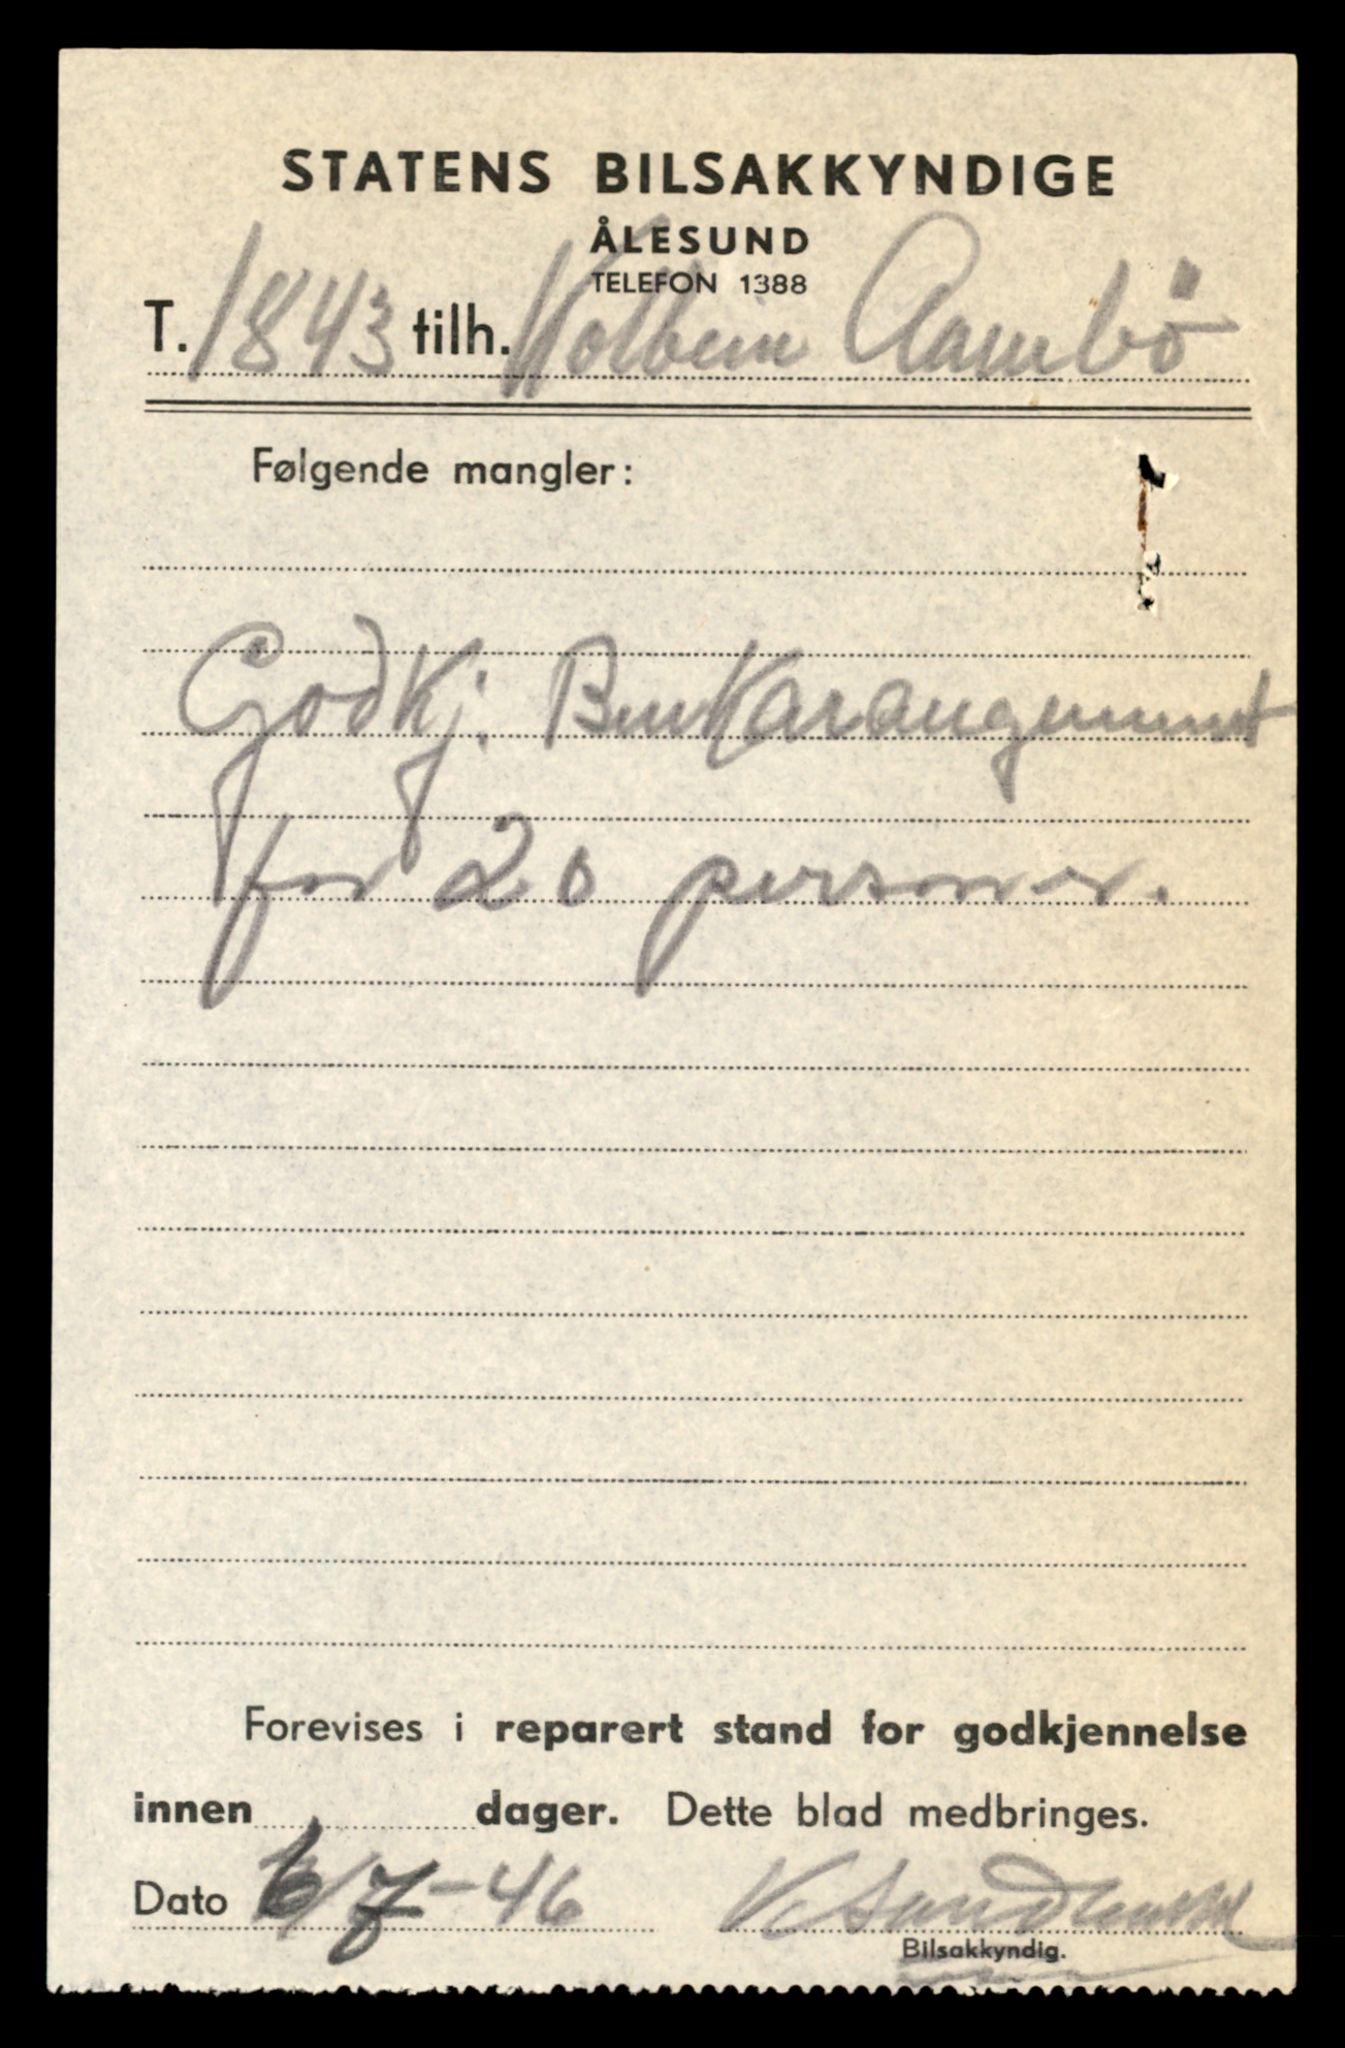 STATENS BILSAKKYNDIGE
ÅLESUND
TELEFON 1388
T. 1843 tilh. Kolbein Aambö
Følgende mangler:
Godkj. Benkarangement
for 20 personer.
Forevises i reparert stand for godkjennelse
innen dager. Dette blad medbringes.
Dato 6/7-46
Bilsakkyndig.